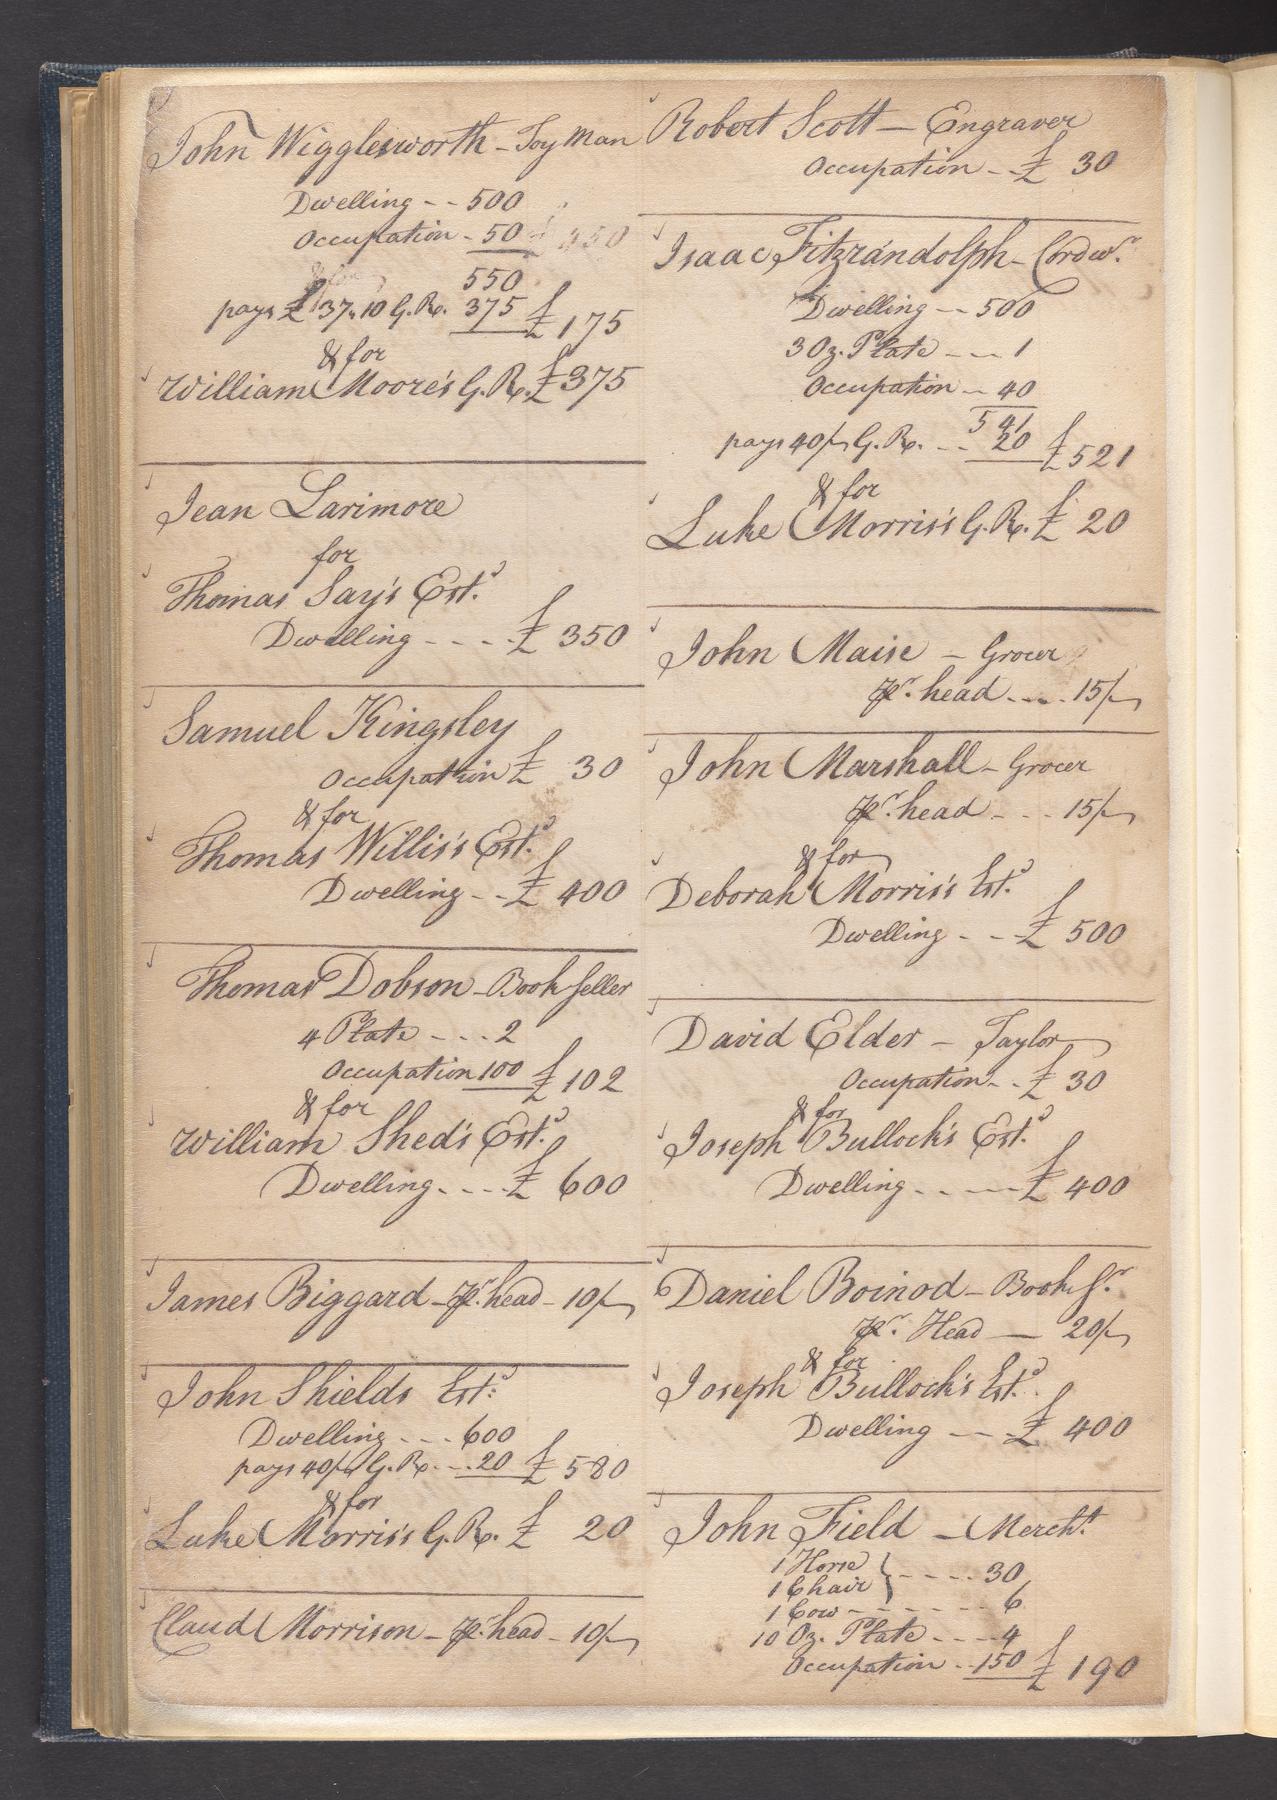 John Wigglesworth - Toy Man
Dwelling - - 500
Occupation - 50
550
pays £ 37.10 G. R. 375 £ 175
& for
William Moore's G. R. £ 375
Jean Larimore
for
Thomas Say's Estd.
Dwelling - - - - £ 350
Samuel Kingsley
Occupation £ 30
& for
Thomas Willis's Estd.
Dwelling - - £ 400
Thomas Dobson - Book Seller
4 Plate - - - 2
Occupation 100 £ 102
& for
William Shed's Estd.
Dwelling - - - - £ 600
James Biggard - pr. head - 10/-
John Shields Estd.
Dwelling - - - 600
pays 40/- G. R. - - - 20 £ 580
& for
Luke Morris's G. R. £ 20
Claud Morrison - pr. head - 10/-
Robert Scott - Engraver
Occupation - - £ 30
Isaac Fitzrandolph - Cordwr.
Dwelling - - 500
3 Oz. Plate - - - 1
Occupation - 40
541
pays 40/- G. R. - - 20 £ 521
& for
Luke Morris's G. R. £ 20
John Maise - Grocer
pr. head - - - - 15/-
John Marshall - Grocer
pr. head - - - 15/-
& for
Deborah Morris's Estd.
Dwelling - - - £ 500
David Elder - Taylor
Occupation - - £ 30
& for
Joseph Bullock's Estd.
Dwelling - - - - - £ 400
Daniel Boinod - Book Sr.
pr. Head - 20/-
& for
Joseph Bullock's Estd.
Dwelling - - - £ 400
John Field - Mercht.
1 Horse
1 Chair } - - - - 30
1 Cow - - - - - - 6
10 Oz. Plate - - - - 4
Occupation - - 150 £ 190